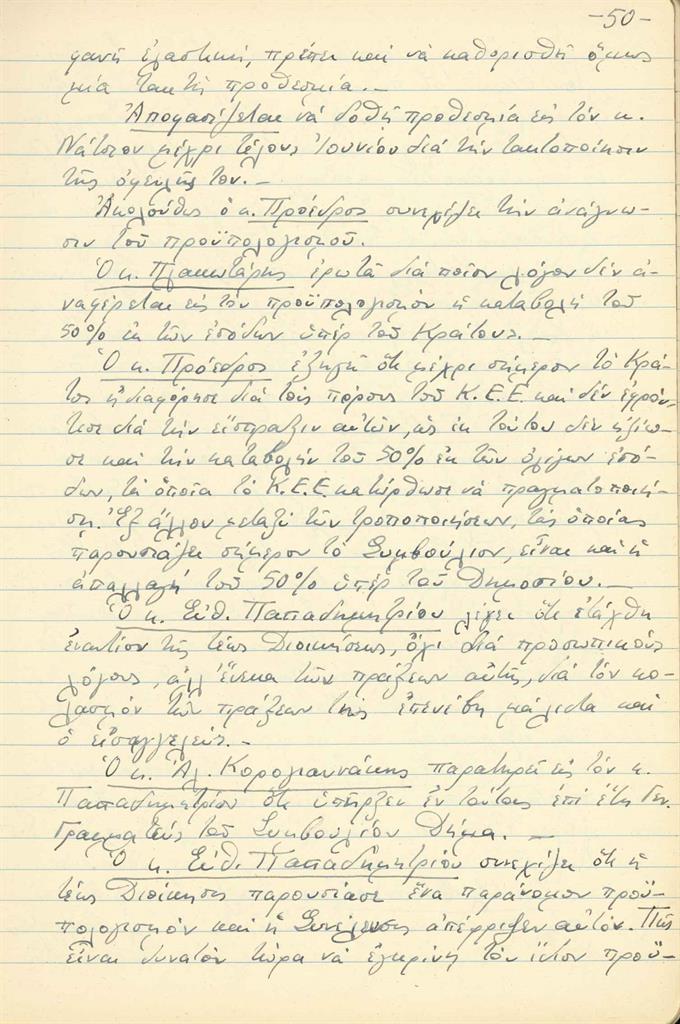 -50-
φανῇ ἐλαστική, πρέπει καὶ νὰ καθορισθῇ ὅμως
μία τακτὴ προθεσμία.—
Ἀποφασίζεται νὰ δοθῇ προθεσμία εἰς τὸν κ.
Νάτσιον μέχρι τέλους Ἰουνίου διὰ τὴν τακτοποίησιν
τῆς ὀφειλῆς του.—
Ἀκολούθως ὁ κ. Πρόεδρος συνεχίζει τὴν ἀνάγνω-
σιν τοῦ προϋπολογισμοῦ.
Ὁ κ. Πλακωτάρης ἐρωτᾷ διὰ ποῖον λόγον δὲν ἀ-
ναφέρεται εἰς τὸν προϋπολογισμὸν ἡ καταβολὴ τοῦ
50% ἐκ τῶν ἐσόδων ὑπὲρ τοῦ Κράτους.—
Ὁ κ. Πρόεδρος ἐξηγεῖ ὅτι μέχρι σήμερον τὸ Κρά-
τος ἠδιαφόρησε διὰ τοὺς πόρους τοῦ Κ.Ε.Ε. καὶ δὲν ἐφρόν-
τισε διὰ τὴν εἴσπραξιν αὐτῶν, ὡς ἐκ τούτου δὲν ἠξίω-
σε καὶ τὴν καταβολὴν τοῦ 50% ἐκ τῶν ὀλίγων ἐσό-
δων, τὰ ὁποῖα τὸ Κ.Ε.Ε. κατώρθωσε νὰ πραγματοποιή-
σῃ. Ἐξ ἄλλου μεταξὺ τῶν τροποποιήσεων, τὰς ὁποίας
παρουσιάζει σήμερον τὸ Συμβούλιον, εἶναι καὶ ἡ
ἀπαλλαγὴ τοῦ 50% ὑπὲρ τοῦ Δημοσίου.—
Ὁ κ. Εὐθ. Παπαδημητρίου λέγει ὅτι ἐτάχθη
ἐναντίον τῆς τέως Διοικήσεως, ὄχι διὰ προσωπικοὺς
λόγους, ἀλλ' ἕνεκα τῶν πράξεων αὐτῆς, διὰ τὸν κο-
λασμὸν τῶν πράξεων της ἐπενέβη μάλιστα καὶ
ὁ εἰσαγγελεύς.—
Ὁ κ. Ἀλ. Κορογιαννάκης παρατηρεῖ εἰς τὸν κ.
Παπαδημητρίου ὅτι ὑπῆρξεν ἐν τούτοις ἐπὶ ἔτη Γεν.
Γραμματεὺς τοῦ Συμβουλίου Δήμα.—
Ὁ κ. Εὐθ. Παπαδημητρίου συνεχίζει ὅτι ἡ
τέως Διοίκησις παρουσίασε ἕνα παράνομον προϋ-
πολογισμὸν καὶ ἡ Συνέλευσις ἀπέρριψεν αὐτόν. Πῶς
εἶναι δυνατὸν τώρα νὰ ἐγκρίνῃ τὸν ἴδιον προϋ-